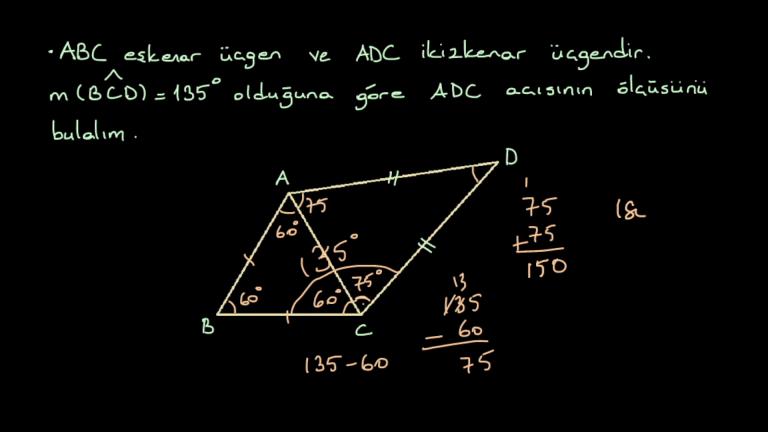 · ABC eşkenar üçgen ve ADC ikizkenar üçgendir.
m(BĈD) = 135° olduğuna göre ADC açısının ölçüsünü
bulalım.
D
A
75
60°
135°
1
75
+75
150
60°
60°
75°
B
C
13
135
- 60
75
135-60